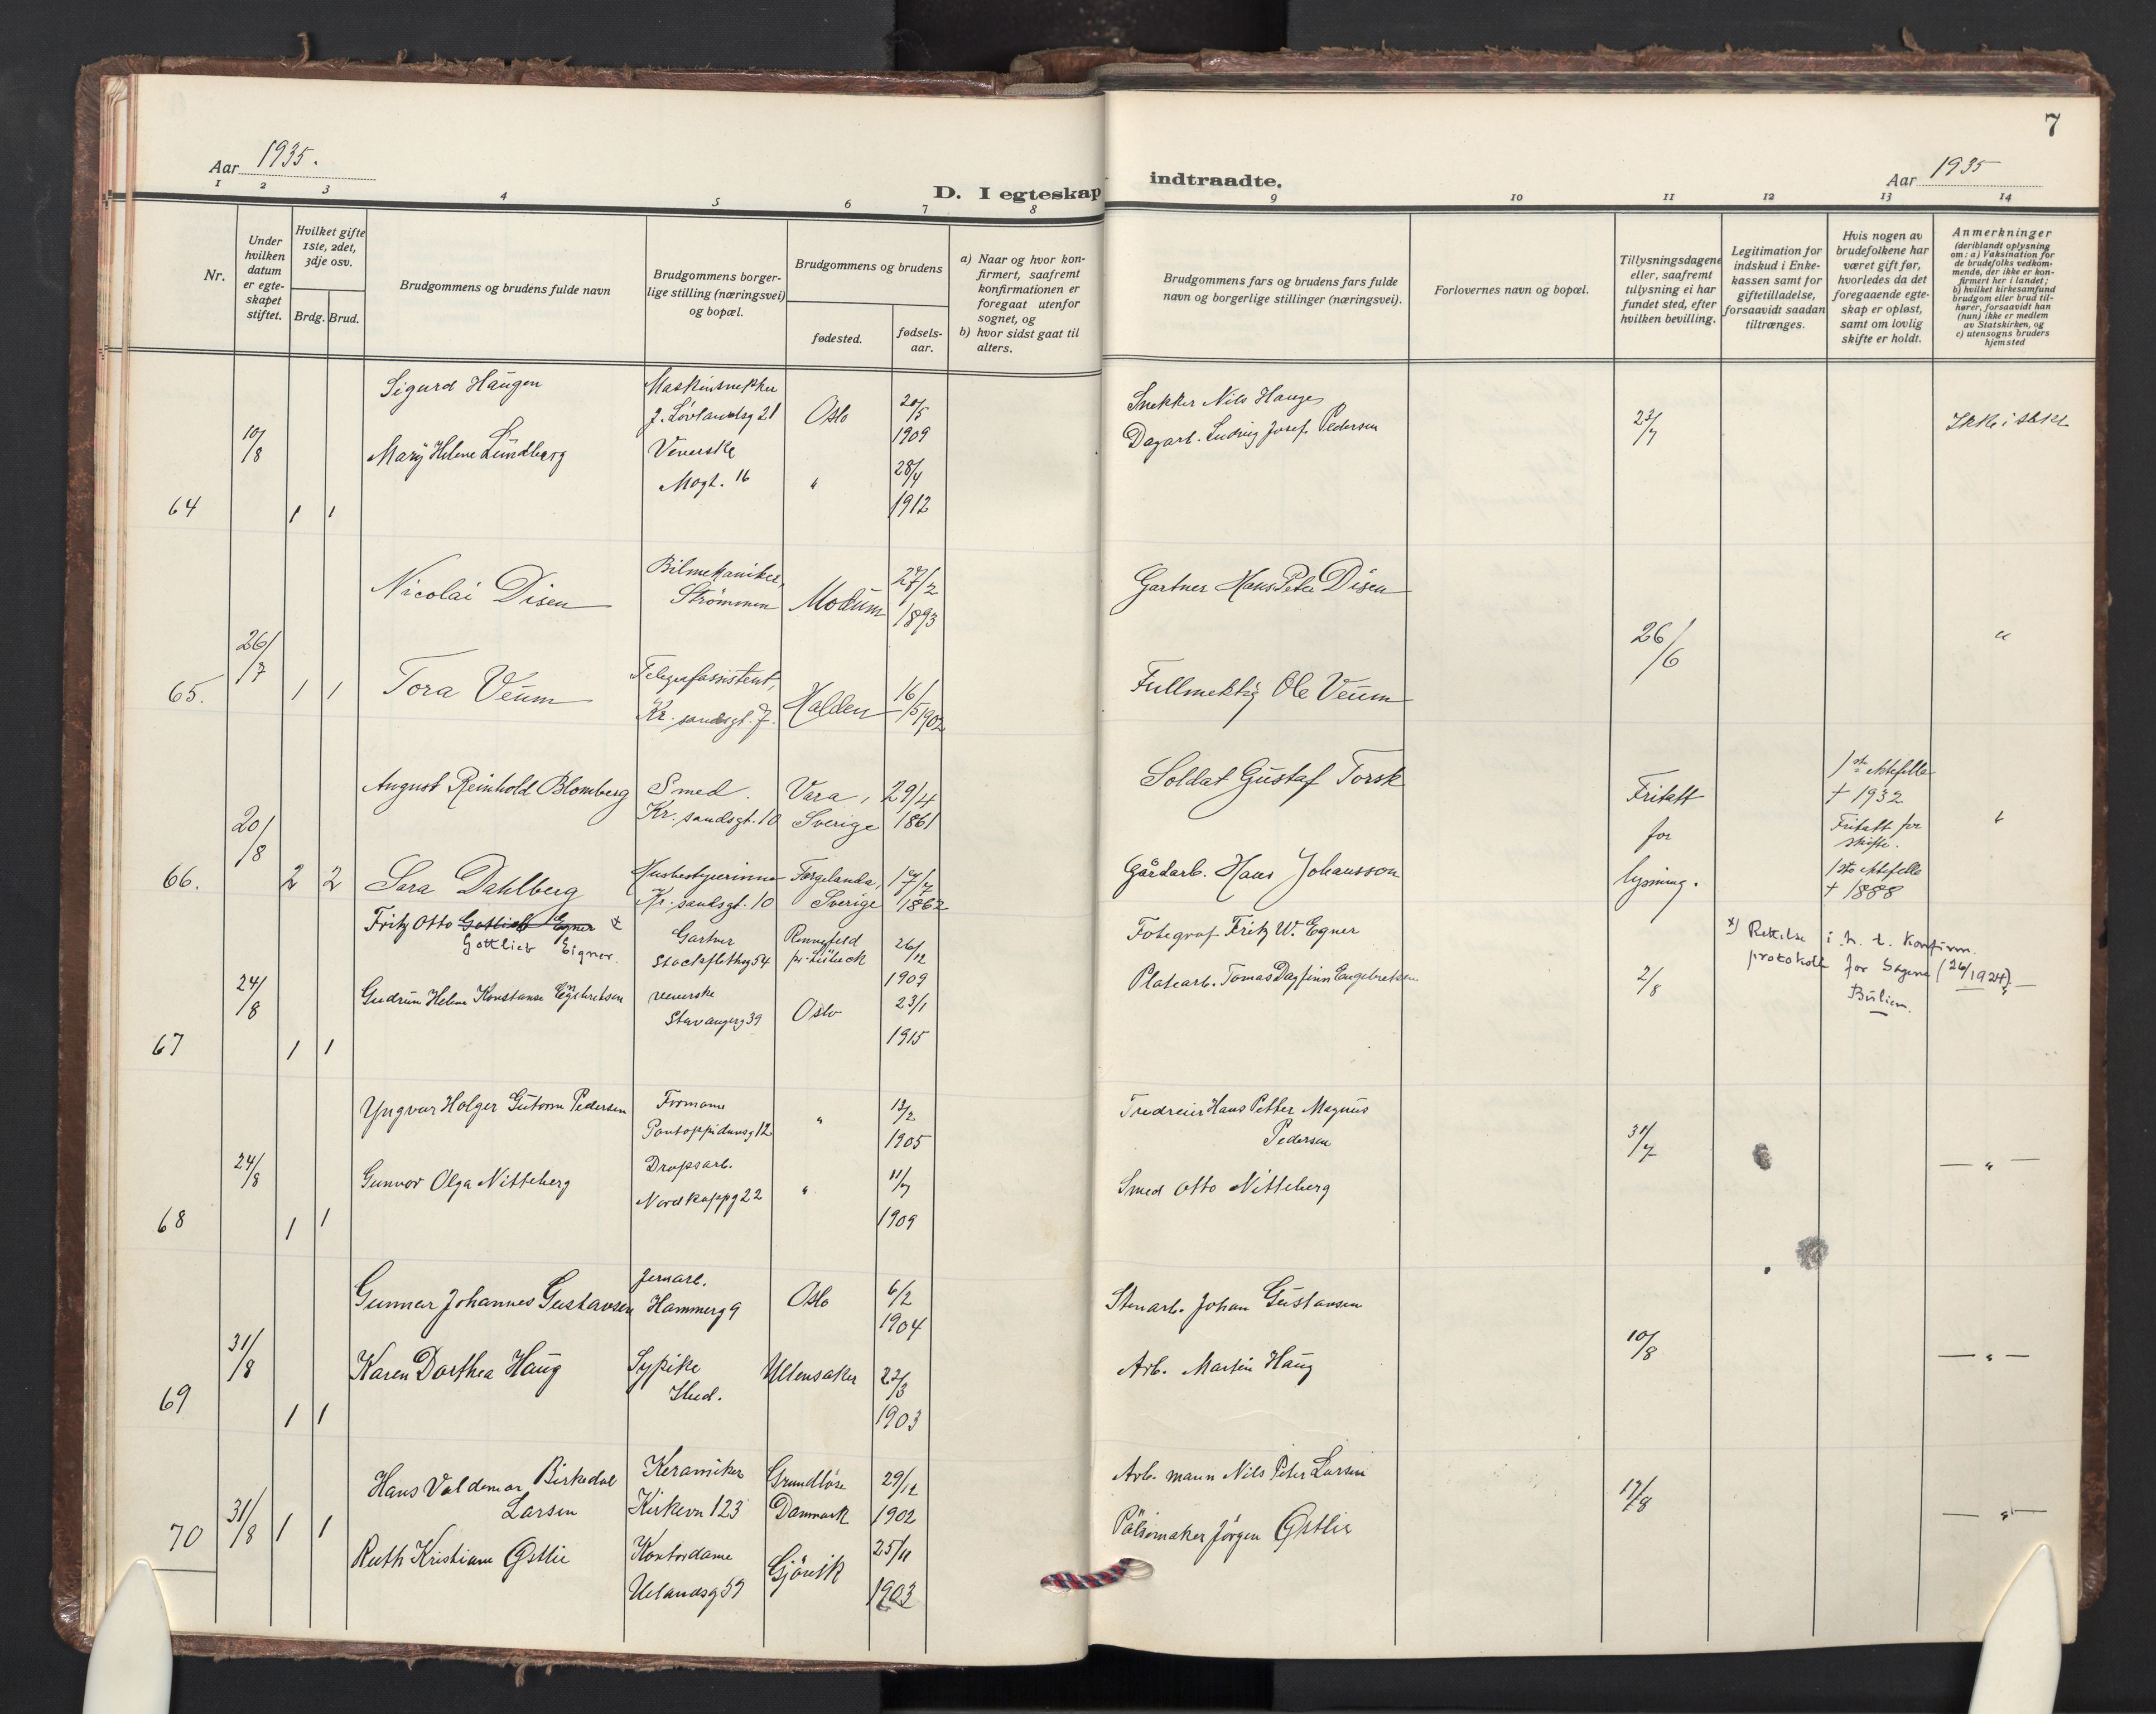 7
Aar 1935.
D. I egteskap indtraadte.
Aar 1935
1 2 3 4 5 6 7 8 9 10 11 12 13 14
Nr.
Under hvilken datum er egte-skapet stiftet.
Hvilket gifte 1ste, 2det, 3dje osv.
Brdg. Brud.
Brudgommens og brudens fulde navn
Brudgommens borger-
lige stilling (næringsvei)
og bopæl.
Brudgommens og brudens
fødested.
fødsels-
aar.
a) Naar og hvor kon-
firmert, saafremt
konfirmationen er
foregaat utenfor
sognet, og
b) hvor sidst gaat til
alters.
Brudgommens fars og brudens fars fulde
navn og borgerlige stillinger (næringsvei).
Forlovernes navn og bopæl.
Tillysningsdagene
eller, saafremt
tillysning ei har
fundet sted, efter
hvilken bevilling.
Legitimation for
indskud i Enke-
kassen samt for
giftetilladelse,
forsaavidt saadan
tiltrænges.
Hvis nogen av
brudefolkene har
været gift før,
hvorledes da det
foregaaende egte-
skap er opløst,
samt om lovlig
skifte er holdt.
Anmerkninger
(deriblandt oplysning
om: a) Vaksination for
de brudefolks vedkom-
mende, der ikke er kon-
firmert her i landet;
b) hvilket kirkesamfund
brudgom eller brud til-
hører, forsaavidt han
(hun) ikke er medlem
av Statskirken, og
c) utensogns bruders
hjemsted
64
10/8
1 1
Sigurd Haugen
Maskinsnekker
J. Løvlandsg 21
Oslo
20/5
1909
Snekker Nils Haugen
Mary Helene Lundberg
Veverske
Mogt. 16
"
28/4
1912
Dagarb. Ludvig Josef Pedersen
23/7
65.
26/7
1 1
Nicolai Disen
Bilmekaniker,
Strømmen
Modum
27/2
1893
Gartner Hans Peter Disen
Tora Veum
Telegrafassistent,
Kr. sandsgt. 7.
Halden
16/5 1902
Fullmektig Ole Veum
26/6
"
66.
20/8
2 2
August Reinhold Blomberg
Smed.
Kr. sandsgt. 10
Vara,
Sverige
29/4
1861
Soldat Gustaf Torsk
Sara Dahlberg
Husbestyrerinne
Kr. sandsgt. 10
Færgelanda,
Sverige
17/7
1862
Gårdarb. Hans Johansson
Fritatt
for
lysning.
1st ektefelle
† 1932
Fritatt for
skifte.
1ste ektefelle
† 1888
67
24/8
1 1
Fritz Otto Gottlieb Egner x
Gottlieb Eigner.
Gartner
Stockflethsg 54
pr. Lübeck
26/12
1909
Fotograf Fritz W. Egner
Gudrun Helene Konstanse Engebretsen
veverske
Stavangerg 39
Oslo
23/1
1915
Platearb. Tomas Dagfinn Engebretsen
2/8
x) Rettelse i h. t. Konfirm.
protokoll for Sagene (26/1924).
68
24/8
1 1
Yngvar Holger Guttorm Pedersen
Formann
Pontoppidansg 12
"
13/2
1905
Tredreier Hans Petter Magnus
Pedersen
Gunvor Olga Nitteberg
Dropsarb.
Nordkappg 22
"
11/7
1909
Smed Otto Nitteberg
31/7
— " —
69
31/8
1 1
Gunnar Johannes Gustavsen
Jernarb.
Hammerg 9
Oslo
6/2
1904
Stenarb. Johan Gustavsen
Karen Dorthea Haug
Sypike
Sted.
Ullensaker
22/3
1903
Arb. Martin Haug
10/8
— " —
70
31/8
1 1
Hans Valdemar Birkedal
Larsen
Keramiker
Kirkevn 123
Grundløse
Danmark
29/12
1902
Arb. mann Nils Peter Larsen
Ruth Kristiane Østlie
Kontordame
Uelandsg 59
Gjövik
25/11
1903
Pølsemaker Jørgen Østlie
17/8
— " —